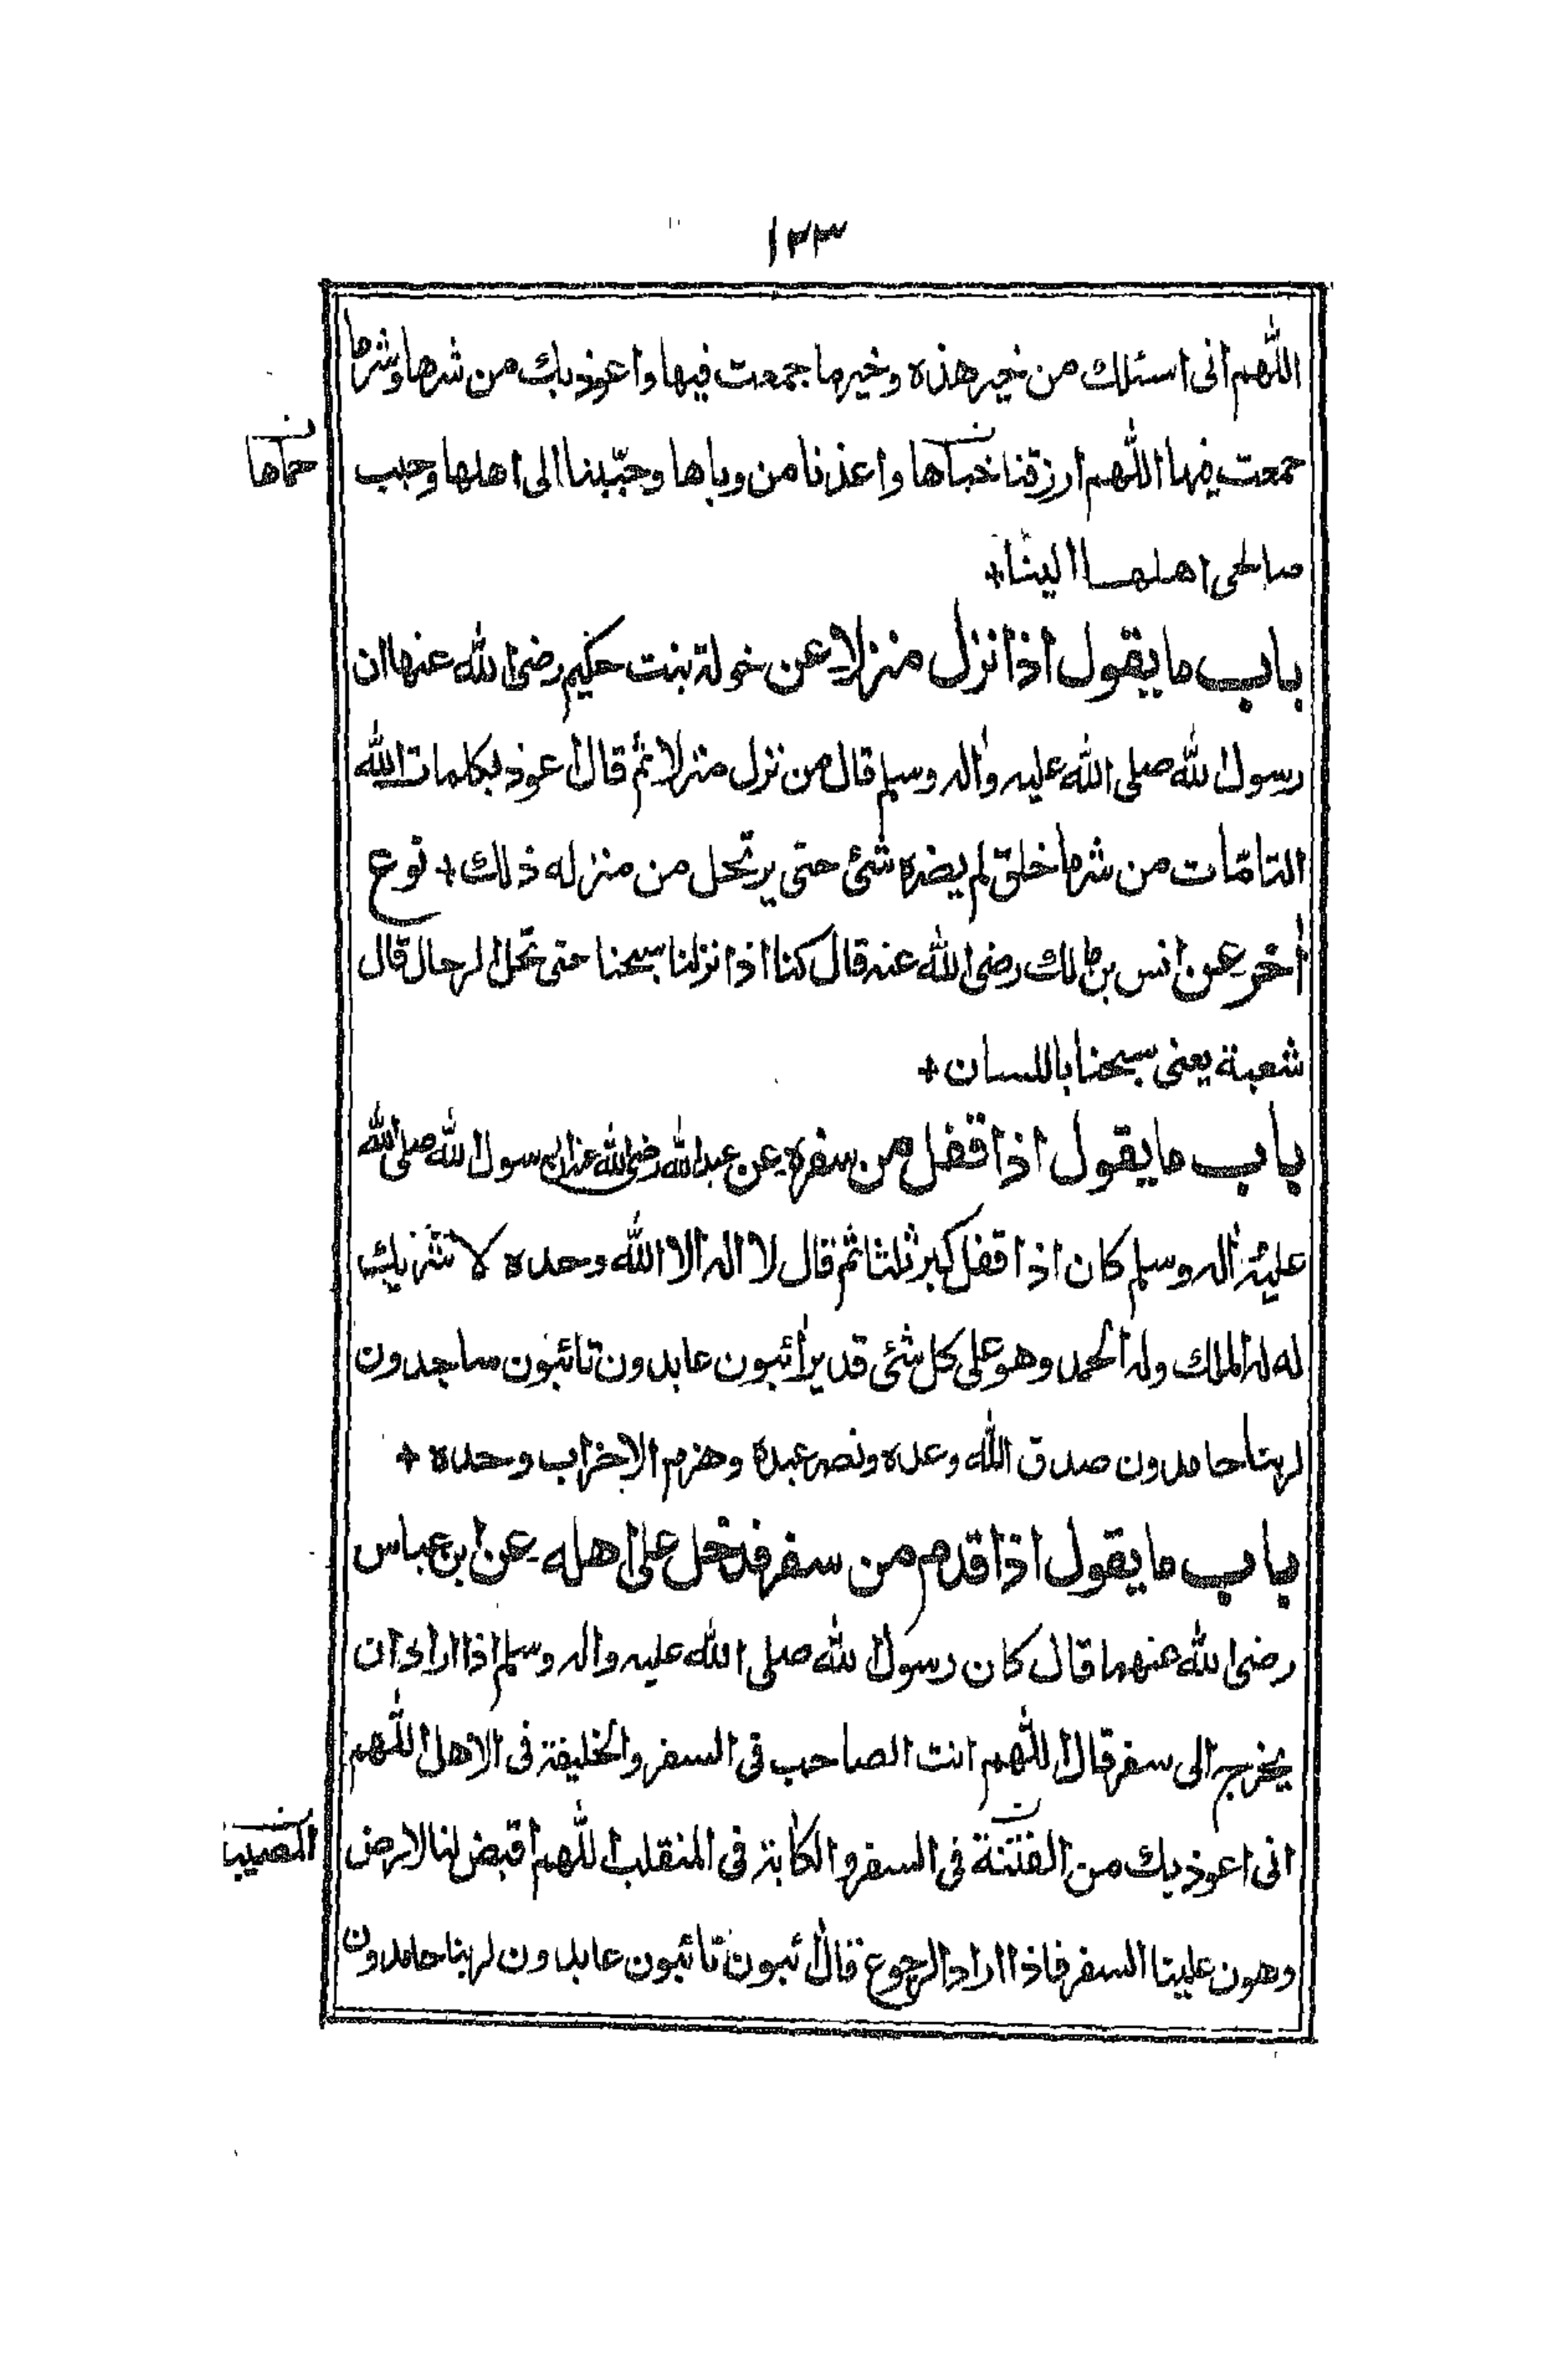 ١٢٣
اللهم انى اسئلك من خير هذه وخير ما جمعت فيها واعوذ بك من شرها وشر ما
جمعت فيها اللهم ارزقنا خباها واعذنا من وباها وحبّبنا الى اهلها وحبب
حماها
صالحى اهلها الينا+
باب ما يقول اذا نزل منزلا عن خولة بنت حكيم رضى الله عنها ان
رسول الله صلى الله عليه واله وسلم قال من نزل منزلا ثم قال اعوذ بكلمات الله
التامّات من شر ما خلق لم يضره شئ حتى يرتحل من منزله ذلك+ نوع
اٰخر عن انس بن مالك رضى الله عنه قال كنا اذا نزلنا سبحنا حتى تحل الرحال قال
شعبة يعنى سبحنا باللسان+
باب ما يقول اذا قفل من سفره عن عبد الله رضى الله عنه ان رسول الله صلى الله
عليه واله وسلم كان اذا قفل كبر ثلثا ثم قال لا اله الا الله وحده لا شريك
له له الملك وله الحمد وهو على كل شئ قدير اٰئبون عابدون تائبون ساجدون
لربنا حامدون صدق الله وعده ونصر عبده وهزم الاحزاب وحده+
باب ما يقول اذا قدم من سفر فدخل على اهله عن ابن عباس
رضى الله عنهما قال كان رسول الله صلى الله عليه واله وسلم اذا اراد ان
يخرج الى سفر قال اللهم انت الصاحب فى السفر والخليفة فى الاهل اللهم
انى اعوذ بك من الفتنة فى السفر والكابة فى المنقلب اللهم اقبض لنا الارض
وهون علينا السفر فاذا اراد الرجوع قال ائبون تائبون عابدون لربنا حامدون